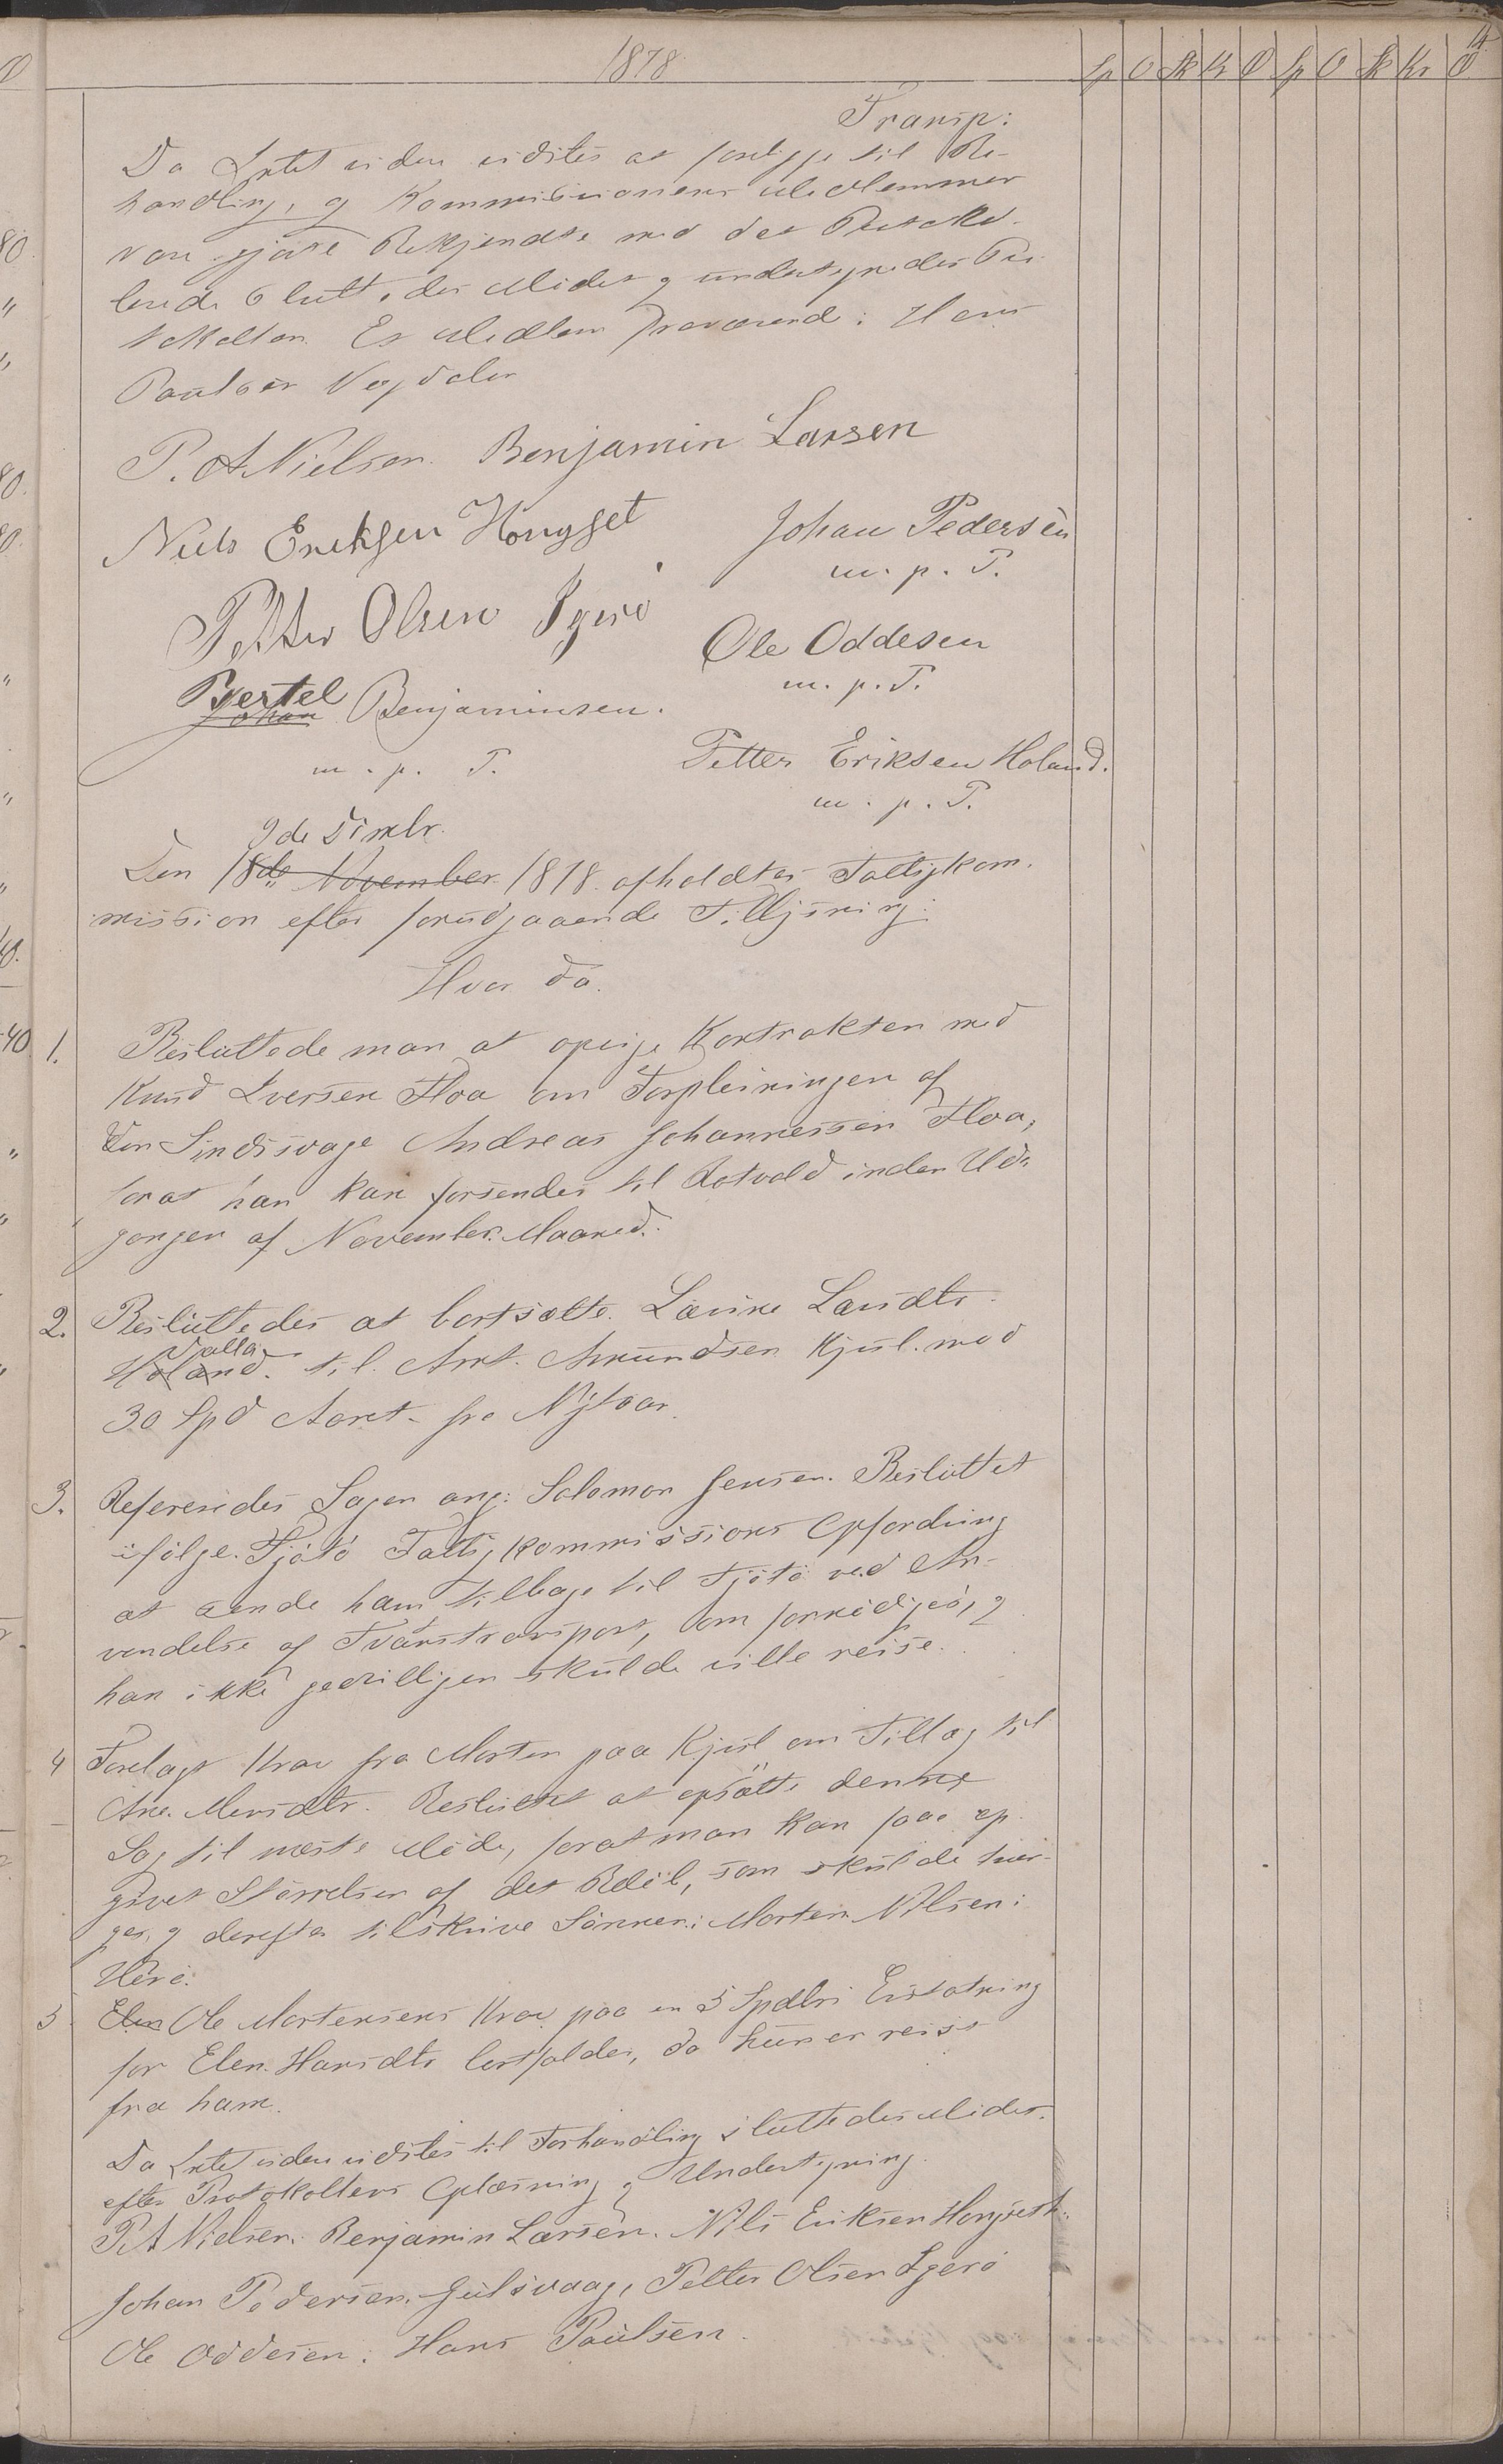 1878
Sp O Sk Kr Ø Sp O Sk Kr Ø
14
Transp:
Da Intet videre vidstes at foreligge til Be-
handling, og Kommissionens Medlemmer
vare gjorte Bekjendte med det Protokol-
lerede sluttedes Mødet og undertegnedes Pro-
tokollen. Et Medlem fraværend: Hans
Paulsen Nogdalen
P. A Nielsen. Benjamin Larsen
Niels Eriksen Hongset
Johan Pedersen
m. p. P.
Petter Olsen Ygerö
Ole Oddesen
m. p. P.
Bertel
Johan Benjaminsen.
m. p. P.
Petter Eriksen Holand.
m. p. P.
9de Dcmbr.
Den 18de November 1878 afholdtes Fattigkom-
mission efter forudgaaende Tillysning:
Hvor da.
1. Besluttede man at opsige Kontrakten med
Knud Iversen Floa om Forpleiningen af
den Sindssvage Andreas Johannessen Floa,
forat han kan forsendes til Rotvold inden Ud-
gangen af November Maaned.
2. Besluttedes at bortsætte Lavine Larsdtr.
Valla
Holand. til Arnt Amundsen Kjul. mod
30 Spd Aaret fra Nÿtaar.
3. Refereredes Sagen ang: Salomon Jensen. Besluttet
ifølge Tjøtö Fattigkommissions Opfordring
at sende ham tilbage til Tjøtö ved An-
vendelse af Tvangstransport, om fornødiges, og
han ikke godvilligen skulde ville reise.
4 Forelagt Krav fra Morten paa Kjul om Tillæg til
Ane Mensdtr. Besluttet at opsætte denne
Sag til næste Møde, forat man kan faae op-
givet Størrelsen af det Beløb, som skulde
ges, og derefter tilskrive Sønnen: Morten Nilsen i
Herö.
5 Elen Ole Mortensens Krav paa en 5 Spdlrs Erstatning
for Elen Hansdtr bortfalder, da hun er reist
fra ham.
Da Intet videre vidstes til Forhandling sluttedes Mødet.
efter Protokollens Oplæsning og Undertegning.
P A Nielsen. Benjamin Larsen. Nils Eriksen Hongseth.
Johan Pedersen. Gulsvaag, Petter Olsen Ygerö
Ole Oddesen. Hans Paulsen.